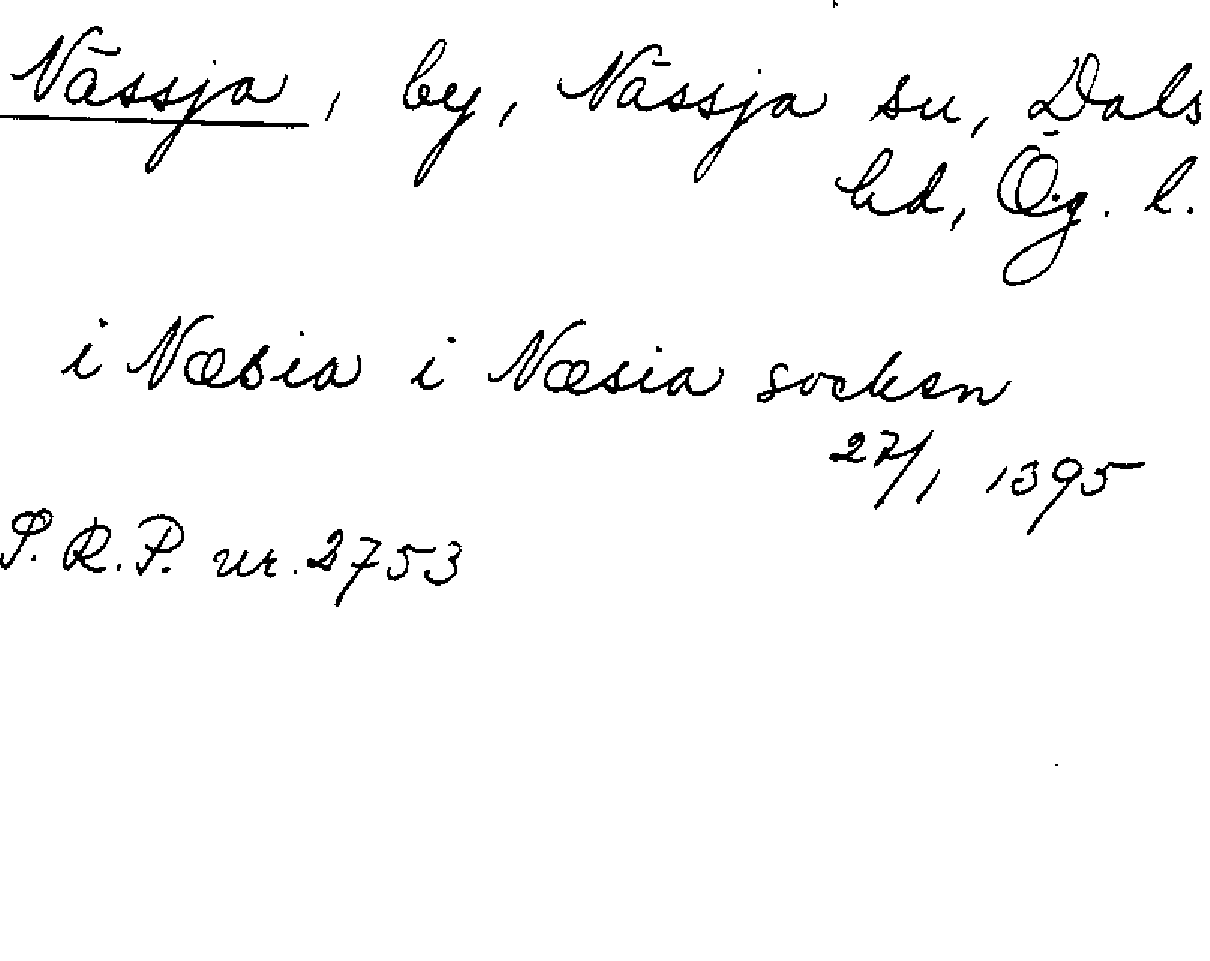 Nässja, by, Nässja sn, Dals
hd, Ög. l.
i Næsia i Næsia socken
27/1 1395
S.R.P. nr. 2753